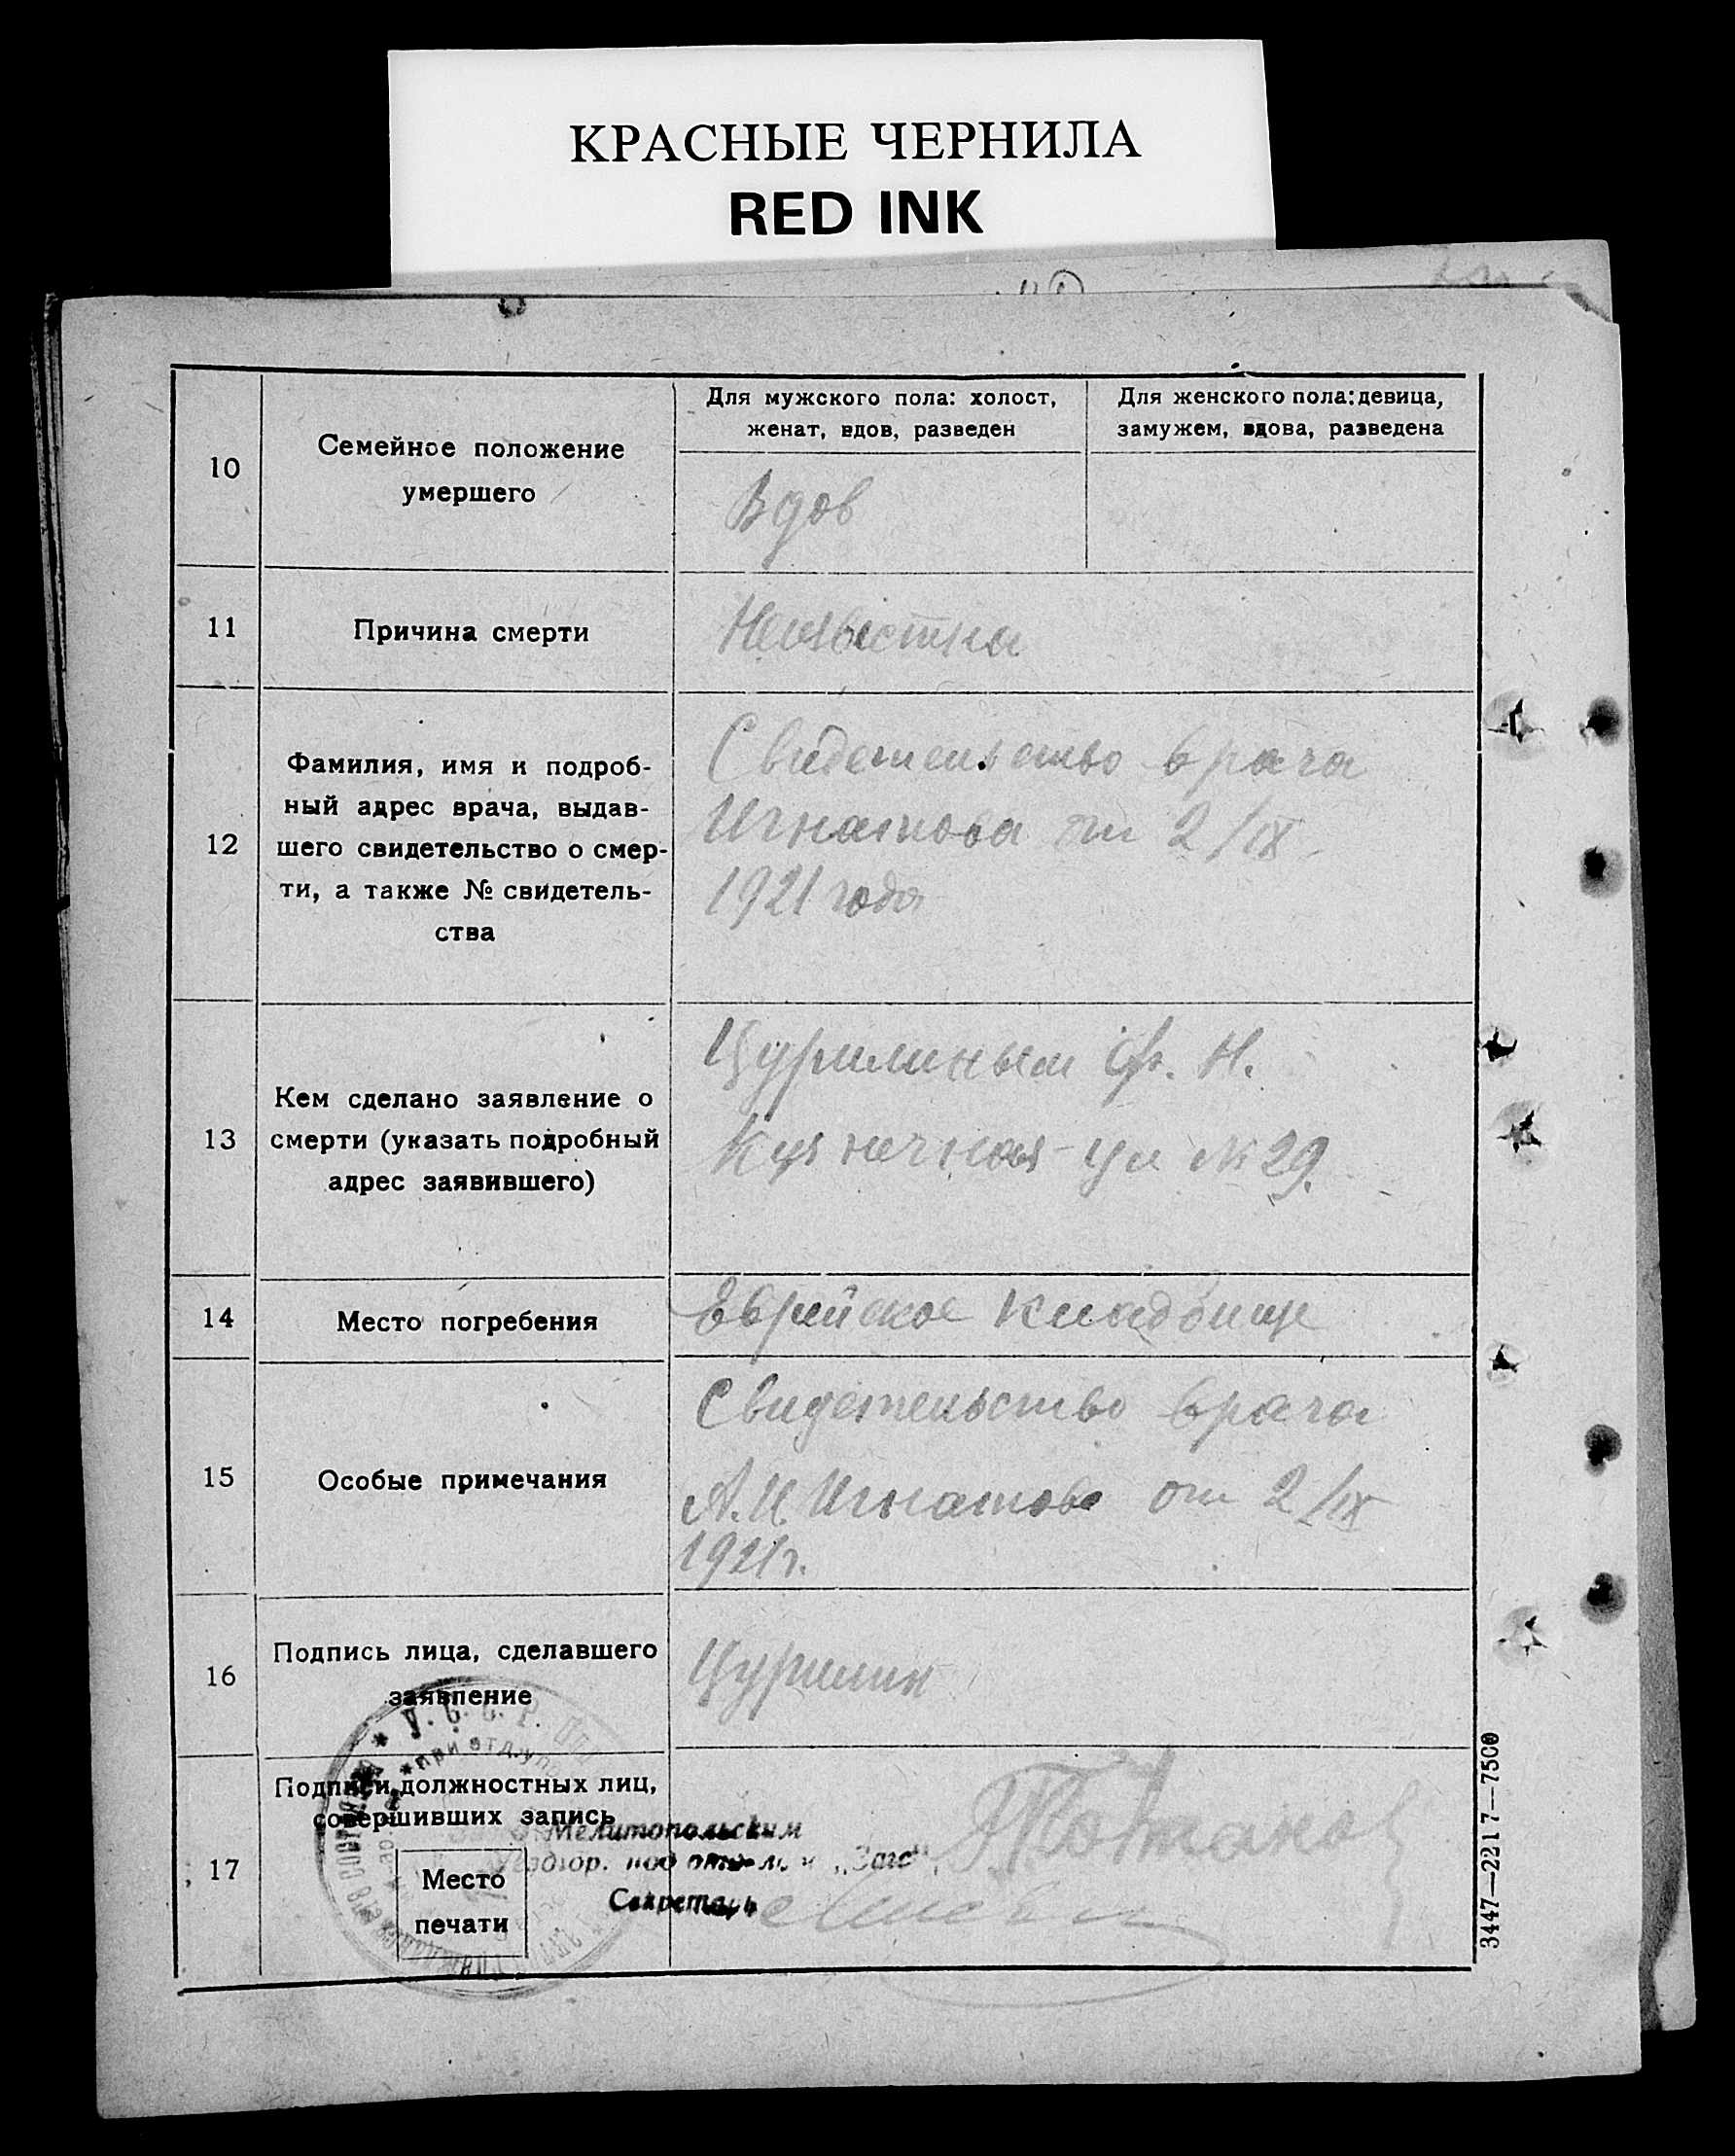 КРАСНЫЕ ЧЕРНИЛА
RED INK
10
Семейное положение
умершего
Для мужского пола: холост,
женат, вдов, разведен
Для женского пола: девица,
замужем, вдова, разведена
Вдов
11
Причина смерти
Неизвестна
12
Фамилия, имя и подроб-
ный адрес врача, выдав-
шего свидетельство о смер-
ти, а также № свидетель-
ства
Свидетельство врача
Игнатова от 2/IX
1921 года
13
Кем сделано заявление о
смерти (указать подробный
адрес заявившего)
Цурилиным Ф. Н.
Кузнечная ул № 29.
14
Место погребения
Еврейское кладбище
15
Особые примечания
Свидетельство врача
А.И. Игнатова от 2/IX
1921 г.
16
Подпись лица, сделавшего
заявление
Цурилин
17
Подписи должностных лиц,
совершивших запись
Место
печати
У. С. С. Р.
при отд. упр
Мелитопольским
под отделом „Загс“
Секретарь
3447—2217—7500